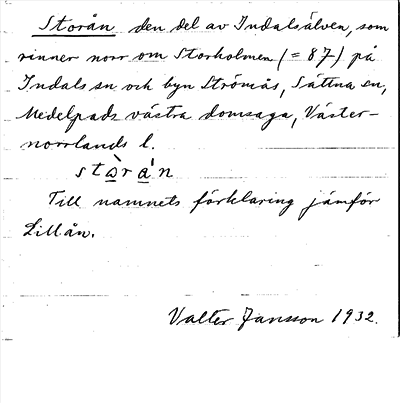 Storån den del av Indalsälven, som
rinner norr om Storholmen (= 87) på
Indals sn och byn Strömås, Sättna sn,
Medelpads västra domsaga, Väster-
norrlands l.
stò̱rá̱n
Till namnets förklaring jämför
Lillån.
Valter Jansson 1932.